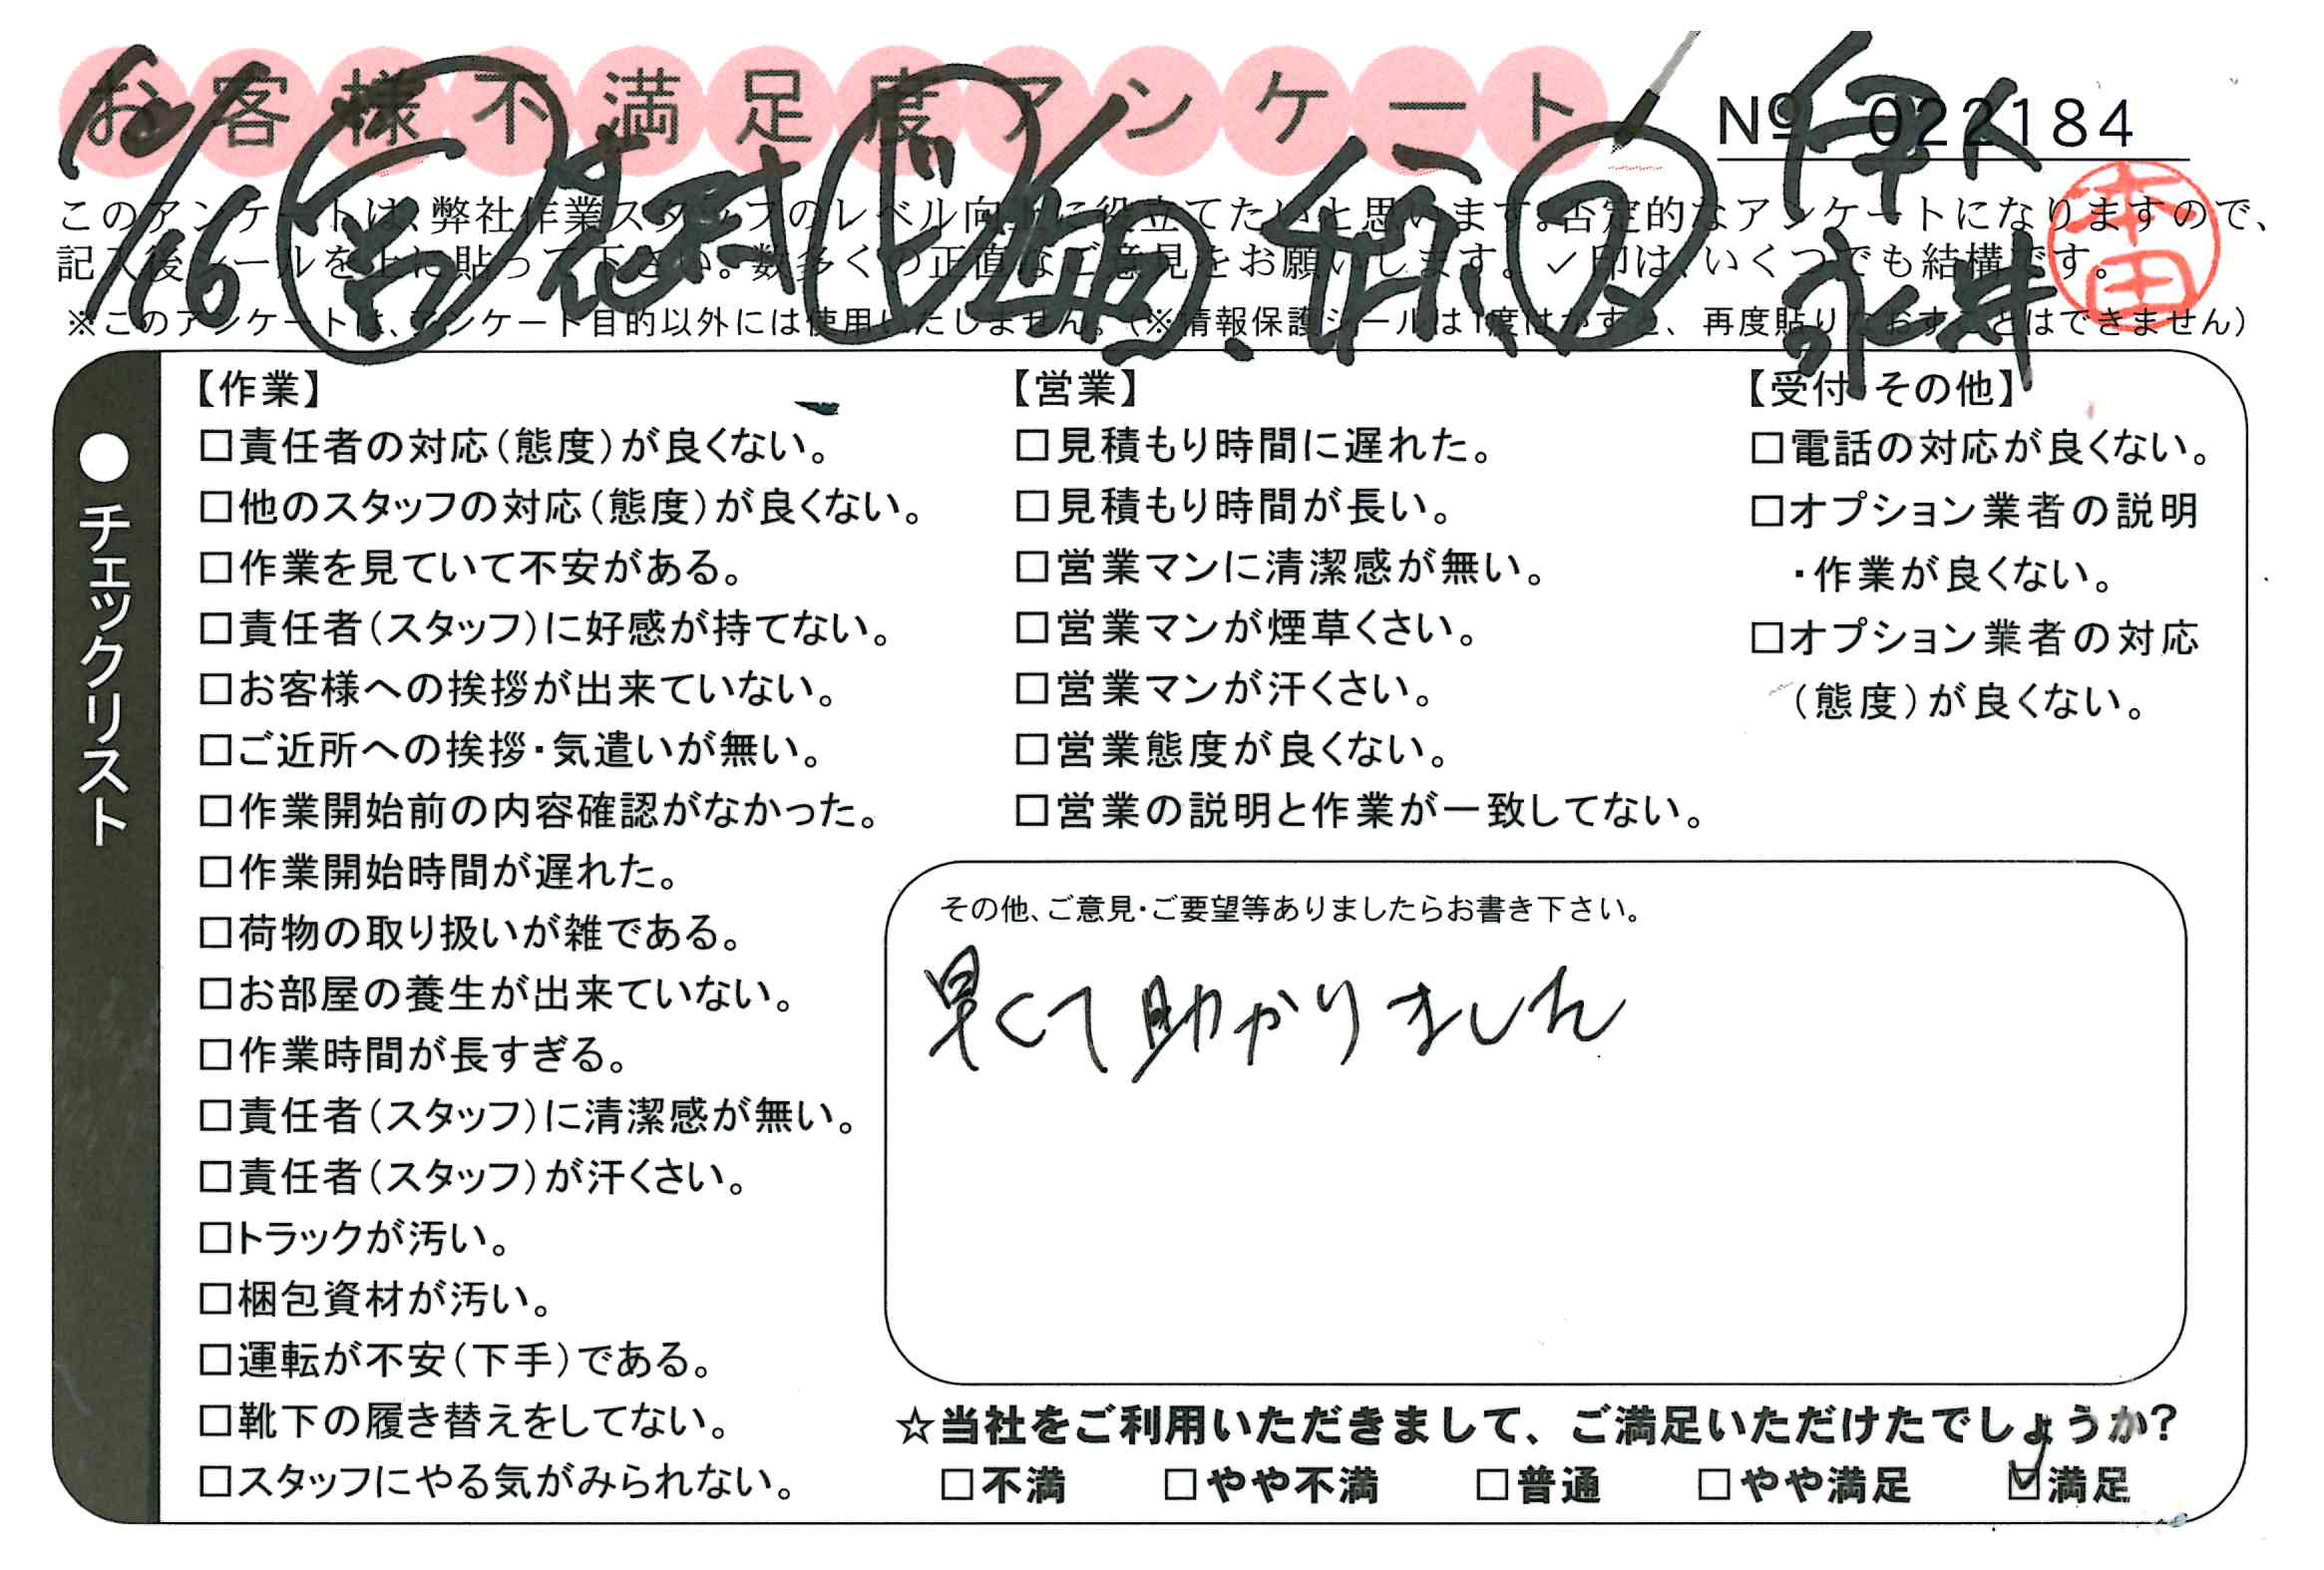 お客様不満足度アンケート
№ 022184
12/16
本田
このアンケートは、弊社作業スタッフのレベル向上に役立てたいと思います。否定的なアンケートになりますので、
記入後シールを上に貼って下さい。数多くの正直なご意見をお願いします。✓印は、いくつでも結構です。
※このアンケートは、アンケート目的以外には使用いたしません。(※情報保護シールは1度はがすと、再度貼りなおすことはできません)
●チェックリスト
【作業】
□責任者の対応(態度)が良くない。
□他のスタッフの対応(態度)が良くない。
□作業を見ていて不安がある。
□責任者(スタッフ)に好感が持てない。
□お客様への挨拶が出来ていない。
□ご近所への挨拶・気遣いが無い。
□作業開始前の内容確認がなかった。
□作業開始時間が遅れた。
□荷物の取り扱いが雑である。
□お部屋の養生が出来ていない。
□作業時間が長すぎる。
□責任者(スタッフ)に清潔感が無い。
□責任者(スタッフ)が汗くさい。
□トラックが汚い。
□梱包資材が汚い。
□運転が不安(下手)である。
□靴下の履き替えをしてない。
□スタッフにやる気がみられない。
【営業】
□見積もり時間に遅れた。
□見積もり時間が長い。
□営業マンに清潔感が無い。
□営業マンが煙草くさい。
□営業マンが汗くさい。
□営業態度が良くない。
□営業の説明と作業が一致してない。
【受付・その他】
□電話の対応が良くない。
□オプション業者の説明
・作業が良くない。
□オプション業者の対応
(態度)が良くない。
その他、ご意見・ご要望等ありましたらお書き下さい。
早くて助かりました
☆当社をご利用いただきまして、ご満足いただけたでしょうか?
□不満 □やや不満 □普通 □やや満足 ☑満足